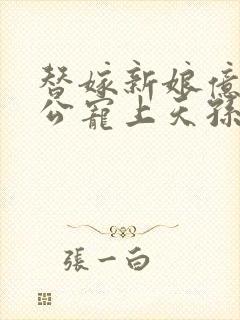 替嫁新娘億
公寵上天孫
張一白